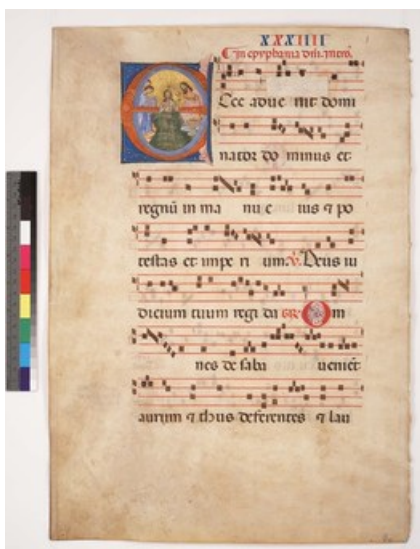 XXXIIII
In epyphania dni. intro.
Ecce adue nit domi
nator do minus et
regnū in ma nu e ius ⁊ po
testas et impe ri um. V. Deus iu
dicium tuum regi da GR. Om
nes de saba uenient
aurum ⁊ thus deferentes ⁊ lau